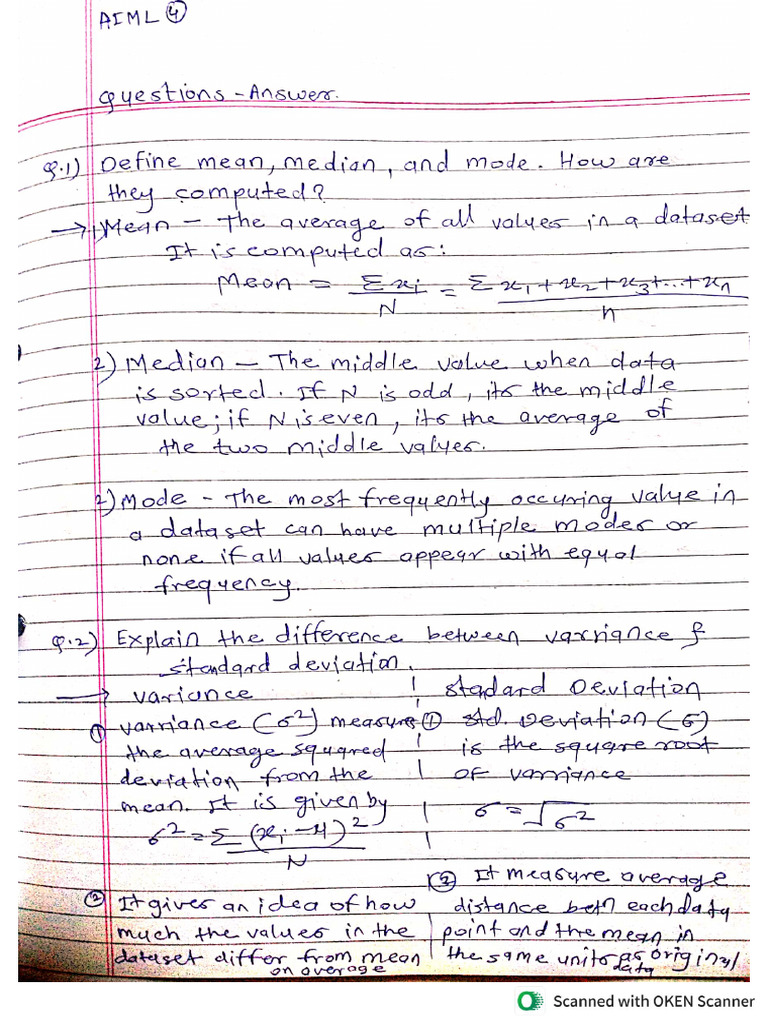 AIML ④
Questions - Answer.
Q.1) Define mean, median, and mode. How are
they computed?
→ 1) Mean - The average of all values in a dataset
It is computed as:
Mean = Σxi/N = Σ x1+x2+x3+...+xn/n
2) Median - The middle value when data
is sorted. If N is odd, its the middle
value; if N is even, its the average of
the two middle values.
2) Mode - The most frequently occuring value in
a dataset can have multiple modes or
none if all values appear with equal
frequency.
Q.2) Explain the difference between varriance &
standard deviation.
→ variance | stadard Deviation
① varriance (σ²) measure ① std. Deviation (σ)
the average squared | is the square root
deviation from the | of varriance
mean. It is given by | σ = √σ²
σ² = Σ (xi - μ)²/N
② It measure average
② It gives an idea of how | distance betn each data
much the values in the | point and the mean in
dataset differ from mean | the same units as original
on average data
Scanned with OKEN Scanner